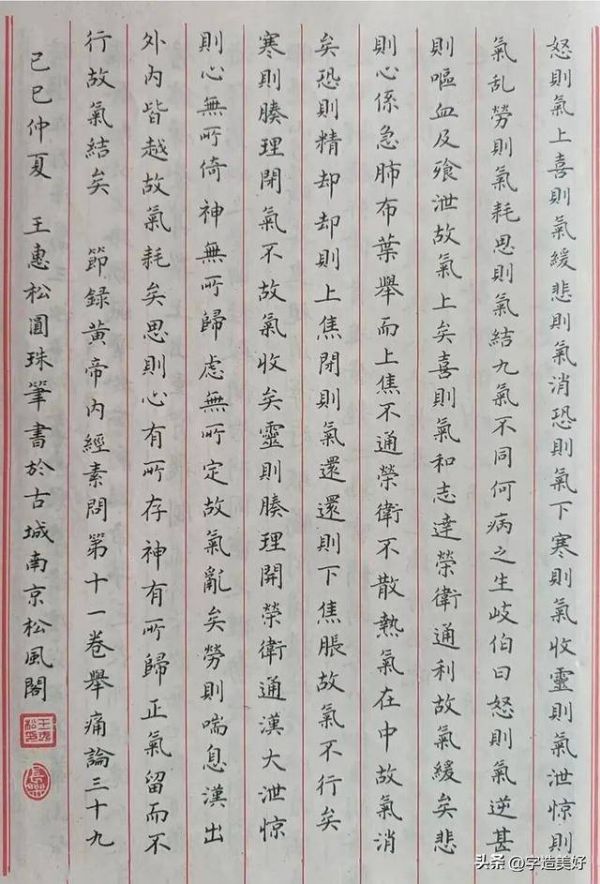 怒則氣上喜則氣緩悲則氣消恐則氣下寒則氣收靈則氣泄惊則
氣乱勞則氣耗思則氣結九氣不同何病之生岐伯曰怒則氣逆甚
則嘔血及飱泄故氣上矣喜則氣和志達榮衛通利故氣緩矣悲
則心係急肺布葉舉而上焦不通榮衛不散熱氣在中故氣消
矣恐則精却却則上焦閉則氣還還則下焦脹故氣不行矣
寒則腠理閉氣不故氣收矣靈則腠理開榮衛通漢大泄惊
則心無所倚神無所歸慮無所定故氣亂矣勞則喘息漢出
外內皆越故氣耗矣思則心有所存神有所歸正氣留而不
行故氣結矣 節錄黃帝內經素問第十一卷舉痛論三十九
己巳仲夏 王惠松圓珠筆書於古城南京松風閣
头条 @字造美好